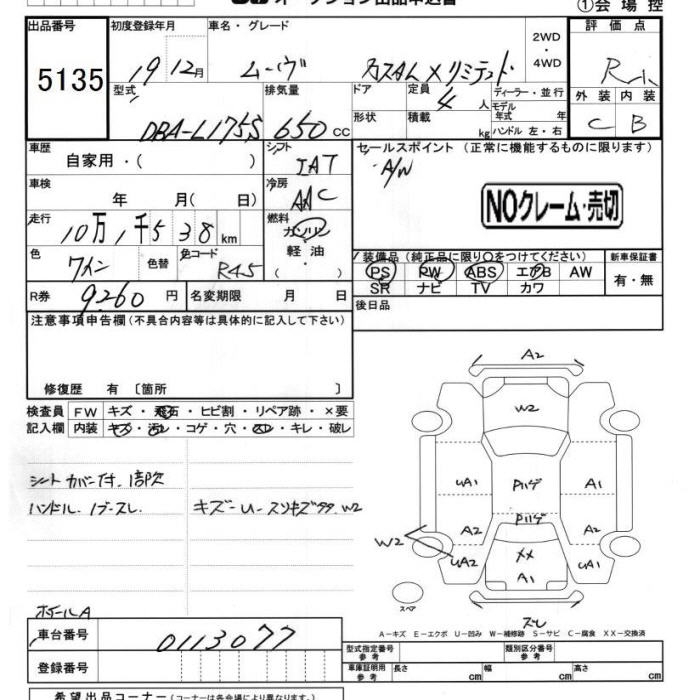 ①会場控
出品番号 初度登録年月 車名・グレード 2WD ・ 4WD 評価点
5135 19 12月 ムーヴ カスタムXリミテッド R
型式 排気量 ドア 定員 4 人 ディーラー・並行 外装 内装
DBA-L175S 650 cc 形状 積載 kg モデル年式 年 ハンドル 左・右 C B
車歴 シフト セールスポイント (正常に機能するものに限ります)
自家用・( ) IAT A/W
車検 冷房
年 月( 日) AAC NOクレーム・売切
走行 燃料
10万1千538km ガソリン
色 色替 色コード 軽油 装備品 (純正品に限り○をつけてください) 新車保証書
ワイン R45 ( ) PS PW ABS エアB AW 有・無
SR ナビ TV カワ
R券 9260 円 名変期限 月 日 後日品
注意事項申告欄 (不具合内容等は具体的に記入して下さい)
修復歴 有 〔箇所 〕
検査員 FW キズ・飛石・ヒビ割・リペア跡・×要
記入欄 内装 キズ・汚レ・コゲ・穴・スレ・キレ・破レ
シートカバー付
ハンドル
キズーU
W2
ホイールA
A2
W2
UA1 A1
A2 A2
W2
UA2 XX UA1
A1
スペア
A-キズ E-エクボ U-凹み W-補修跡 S-サビ C-腐食 XX-交換済
車台番号 0113077 型式指定番号 参考 類別区分番号 参考
登録番号 車庫証明用 参考 長さ cm 幅 cm 高さ cm
希望出品コーナー (コーナーは各会場により異なります。)